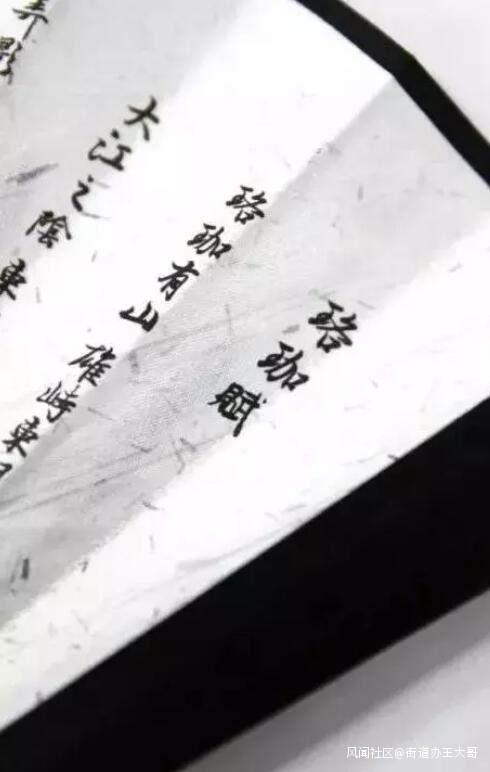 珞珈賦
珞珈有山 雄峙東
大江之陰 東
弄影
风闻社区@街道办王大哥